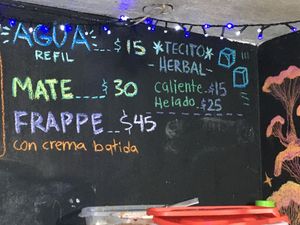 AGUA $15
REFIL
MATE $30
FRAPPE $45
con crema batida
*TECITO*
-HERBAL-
caliente $15
Helado $25